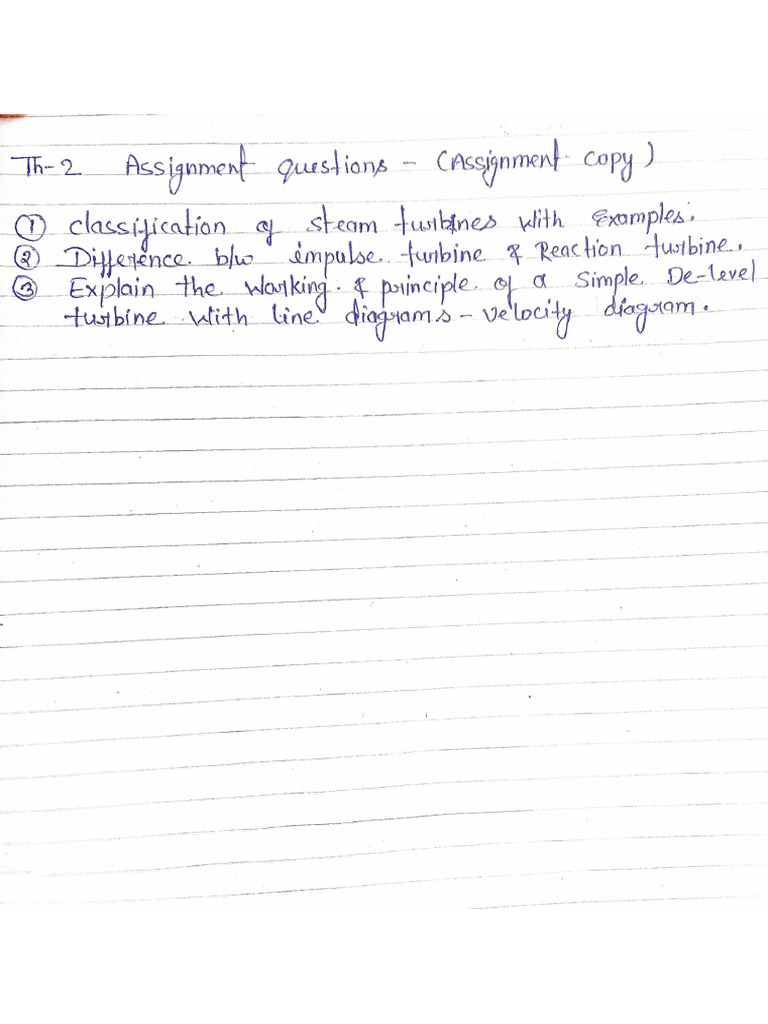 Th-2 Assignment questions - (Assignment copy)
① classification of steam turbines with Examples.
② Difference b/w impulse turbine & Reaction turbine.
③ Explain the working & principle of a simple De-level
turbine with line diagrams - velocity diagram.